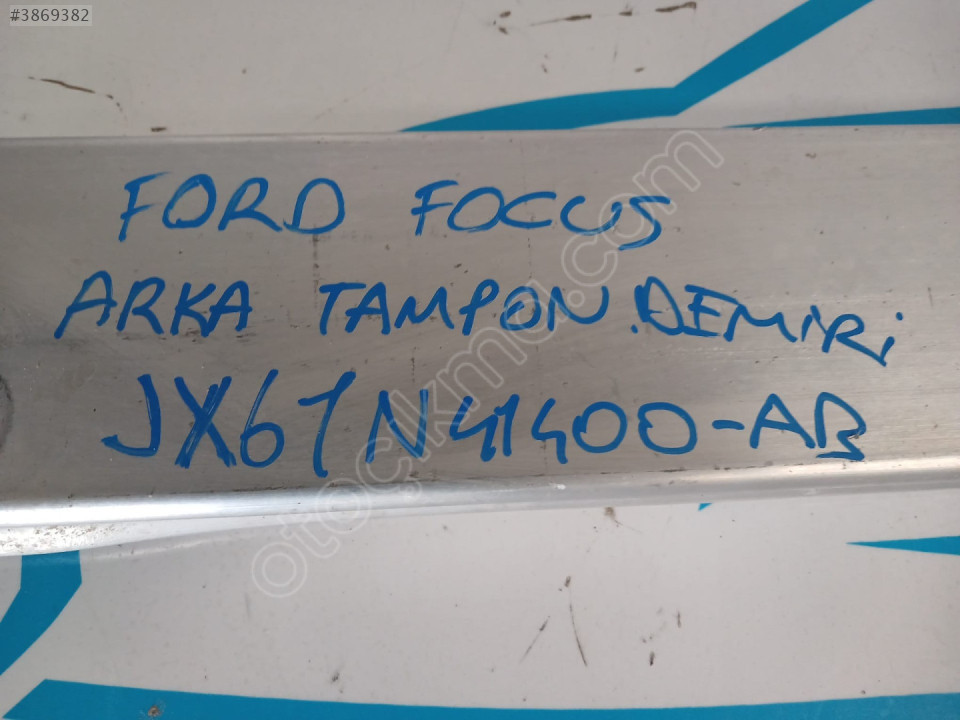 #3869382
FORD FOCUS
ARKA TAMPON DEMİRİ
JX61N41400-AB
otocikma.com